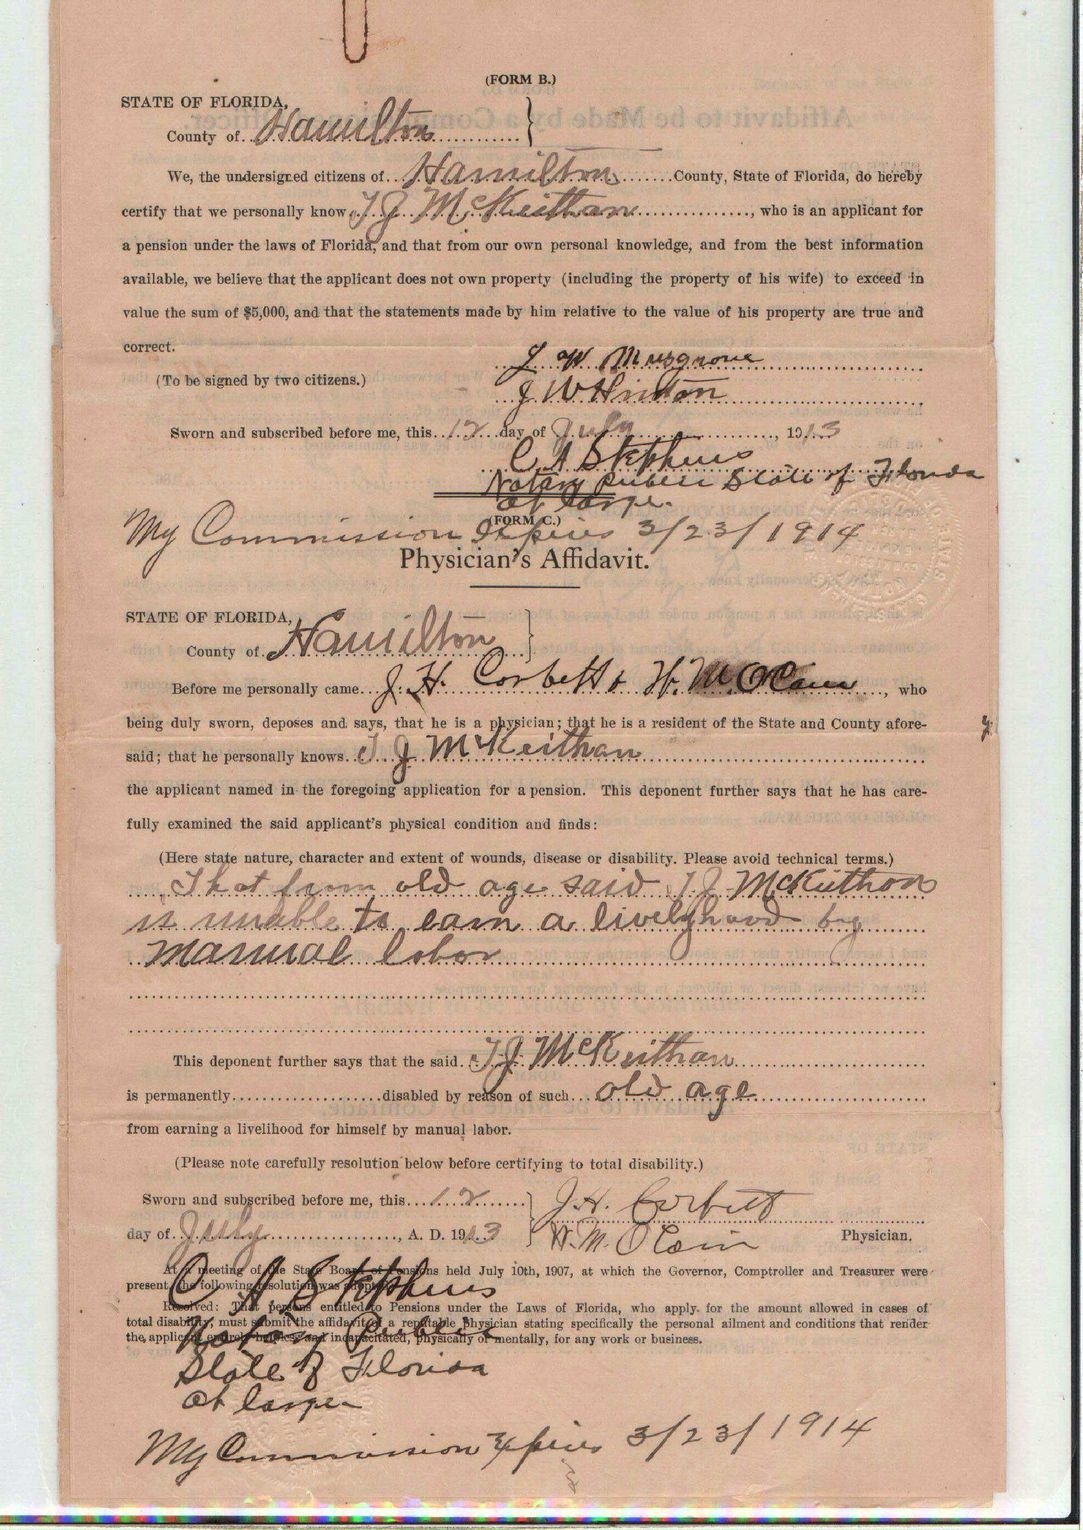 (FORM B.)
STATE OF FLORIDA,
County of Hamilton
We, the undersigned citizens of Hamilton County, State of Florida, do hereby
certify that we personally know T J McKeithan, who is an applicant for
a pension under the laws of Florida, and that from our own personal knowledge, and from the best information
available, we believe that the applicant does not own property (including the property of his wife) to exceed in
value the sum of $5,000, and that the statements made by him relative to the value of his property are true and
correct.
J W Musgrove
(To be signed by two citizens.)
J W Hinton
Sworn and subscribed before me, this 12 day of July, 1913
C A Stephens
Notary Public State of Florida
at large.
(FORM C.)
My Commission Expires 3/23/1914
Physician's Affidavit.
STATE OF FLORIDA,
County of Hamilton
Before me personally came J. H. Corbett & H. M. OCain, who
being duly sworn, deposes and says, that he is a physician; that he is a resident of the State and County afore-
said; that he personally knows T J McKeithan
the applicant named in the foregoing application for a pension. This deponent further says that he has care-
fully examined the said applicant's physical condition and finds:
(Here state nature, character and extent of wounds, disease or disability. Please avoid technical terms.)
That from old age said T J McKeithan
is unable to earn a livelyhood by
manual labor
This deponent further says that the said T J McKeithan
is permanently disabled by reason of such old age
from earning a livelihood for himself by manual labor.
(Please note carefully resolution below before certifying to total disability.)
Sworn and subscribed before me, this 12
J. H. Corbett
day of July, A. D. 1913
H. M. OCain Physician.
At a meeting of the State Board of Pensions held July 10th, 1907, at which the Governor, Comptroller and Treasurer were
present, the following resolution was adopted:
C A Stephens
Resolved: That persons entitled to Pensions under the Laws of Florida, who apply for the amount allowed in cases of
total disability, must submit the affidavit of a reputable physician stating specifically the personal ailment and conditions that render
the applicant entirely helpless and incapacitated, physically or mentally, for any work or business.
Notary Public
State of Florida
at large
My Commission Expires 3/23/1914